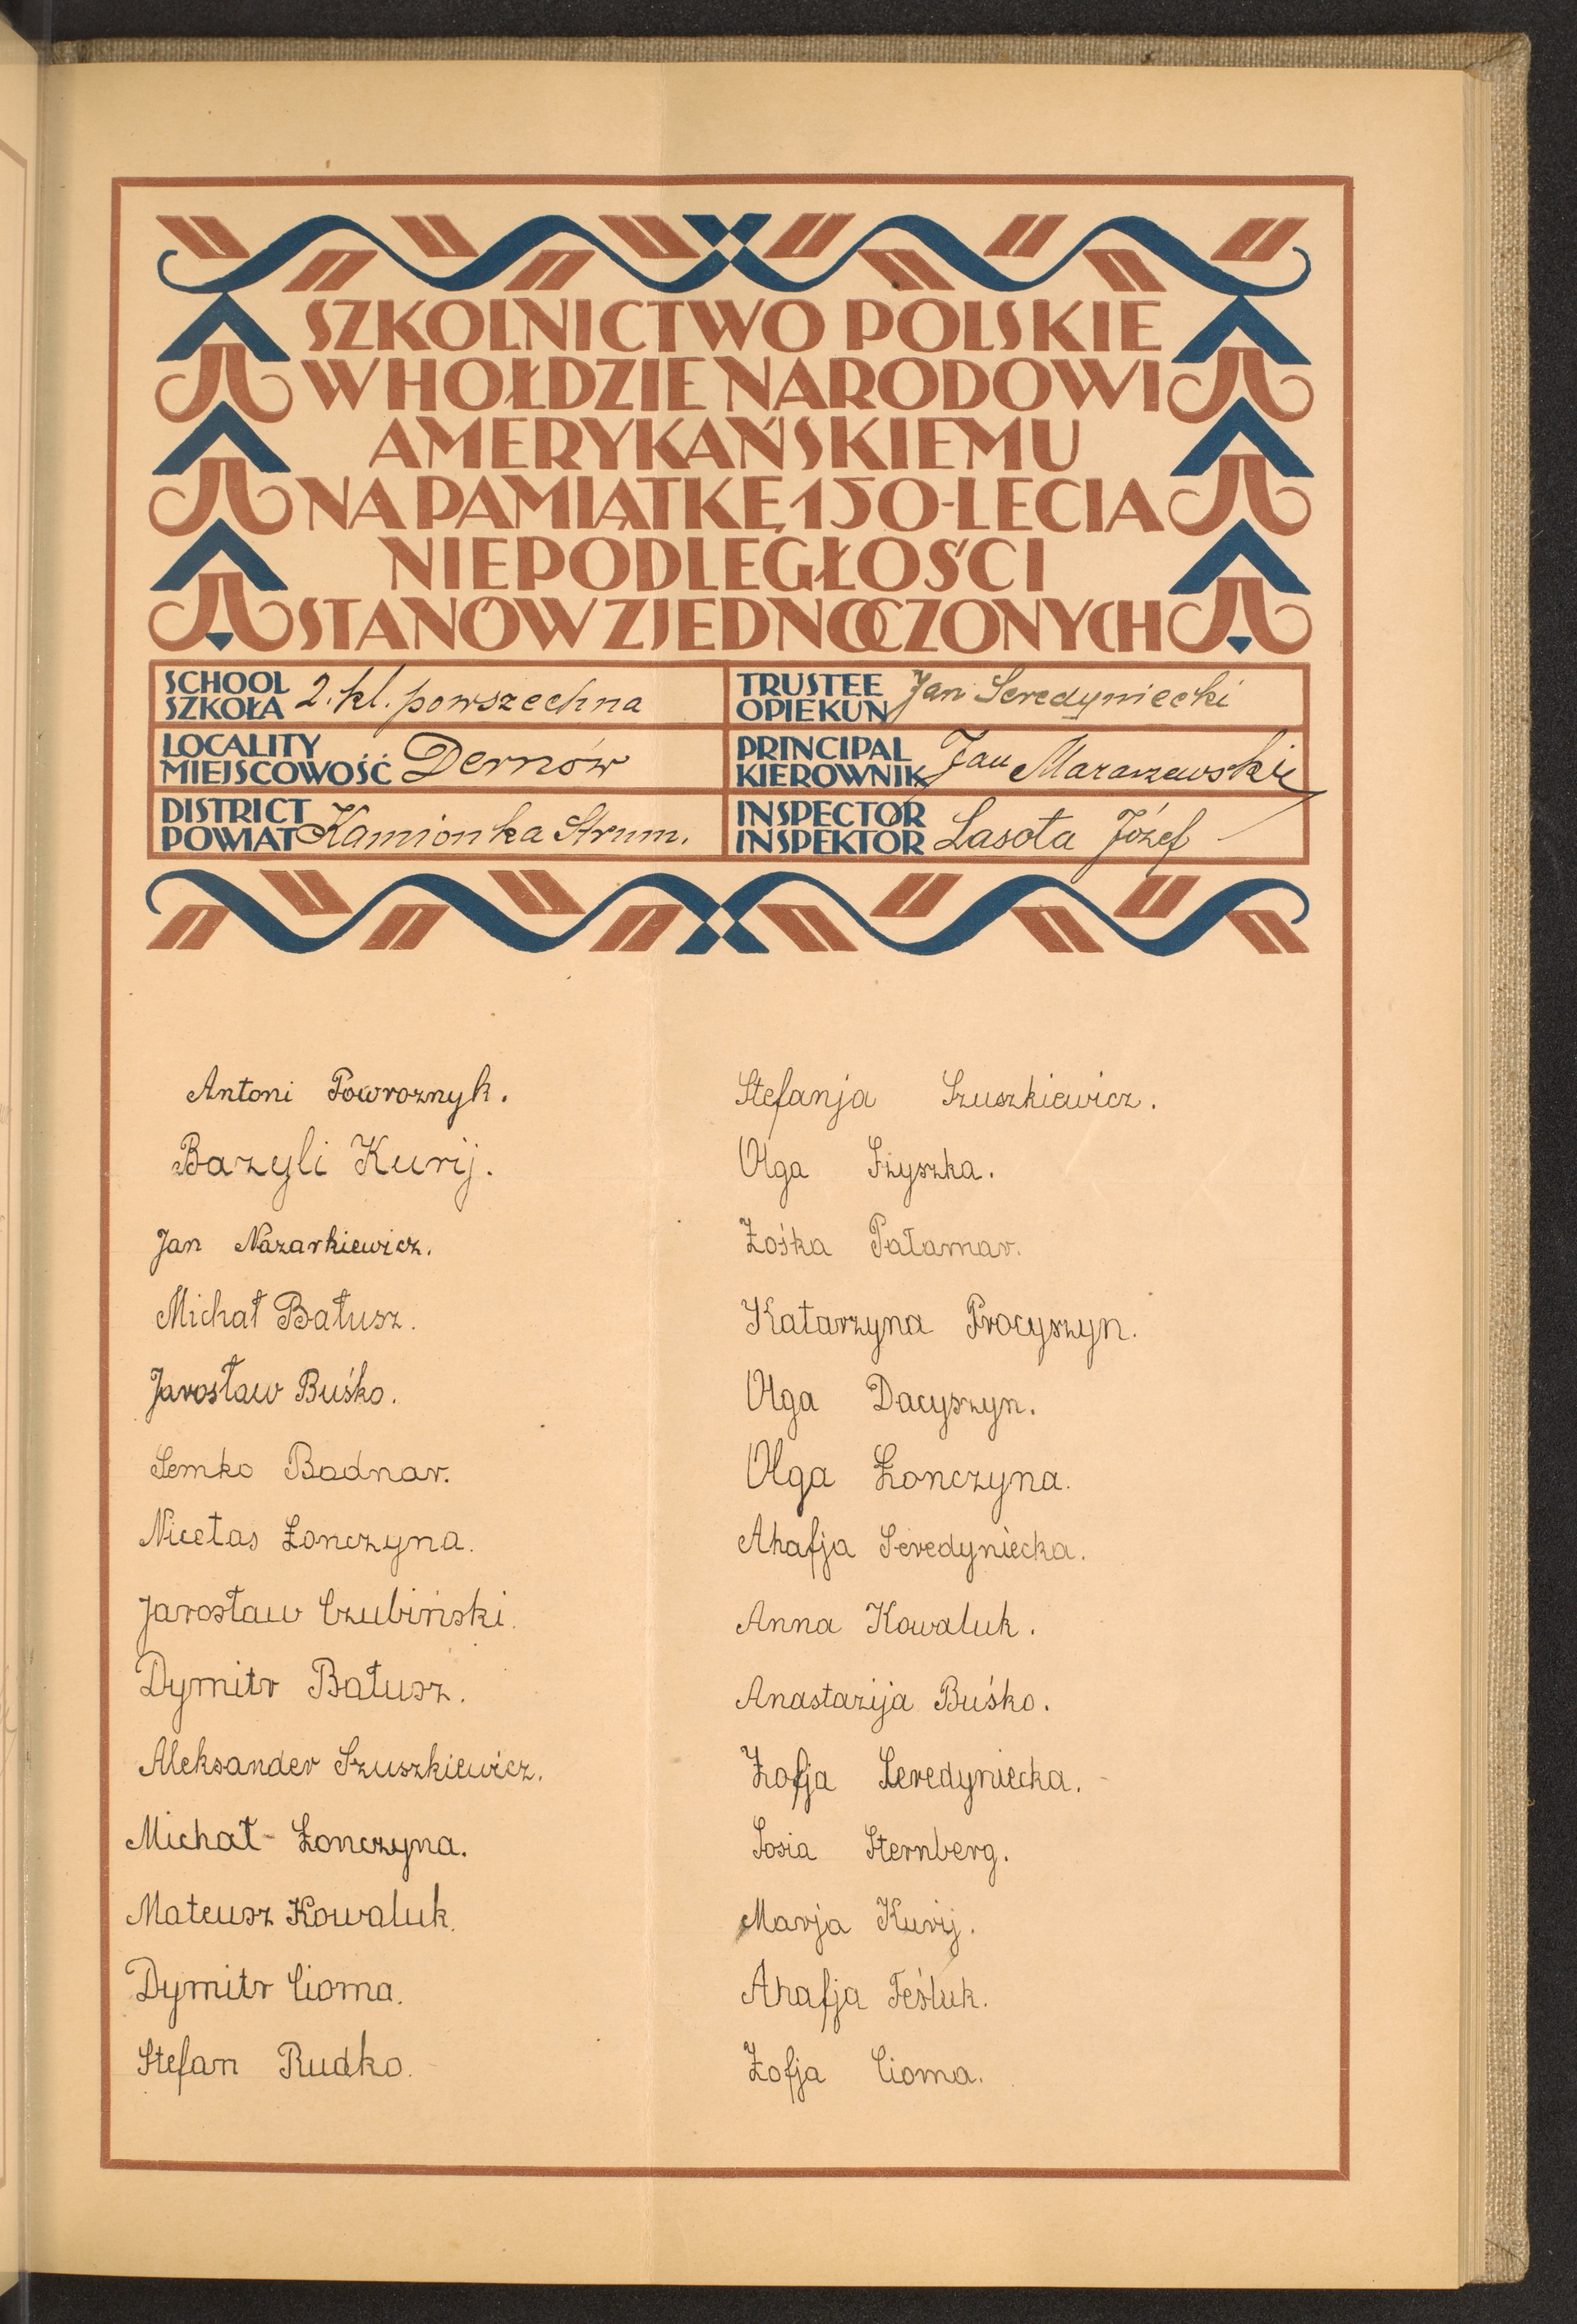 SZKOLNICTWO POLSKIE
W HOŁDZIE NARODOWI
AMERYKAŃSKIEMU
NA PAMIĄTKĘ 150-LECIA
NIEPODLEGŁOŚCI
STANÓW ZJEDNOCZONYCH
SCHOOL
SZKOŁA 2. kl. powszechna
LOCALITY
MIEJSCOWOŚĆ Dernów
DISTRICT
POWIAT Kamionka Strum.
TRUSTEE
OPIEKUN Jan Seredyniecki
PRINCIPAL
KIEROWNIK Jan Maraszewski
INSPECTOR
INSPEKTOR Lasota Józef
Antoni Powroznyk.
Bazyli Kurij.
Jan Nazarkiewicz.
Michał Bałusz.
Jarosław Buśko.
Semko Bodnar.
Nicetas Łonczyna.
Jarosław Czubiński.
Dymitr Bałusz.
Aleksander Szuszkiewicz.
Michał Łonczyna.
Mateusz Kowaluk.
Dymitr Cioma.
Stefan Rudko.
Stefanja Szuszkiewicz.
Olga Szyszka.
Zośka Pałamar.
Katarzyna Procyszyn.
Olga Dacyszyn.
Olga Łonczyna.
Ahafja Seredyniecka.
Anna Kowaluk.
Anastazija Buśko.
Zofja Seredyniecka.
Sosia Sternberg.
Marja Kurij.
Ahafja Feśluk.
Zofja Cioma.